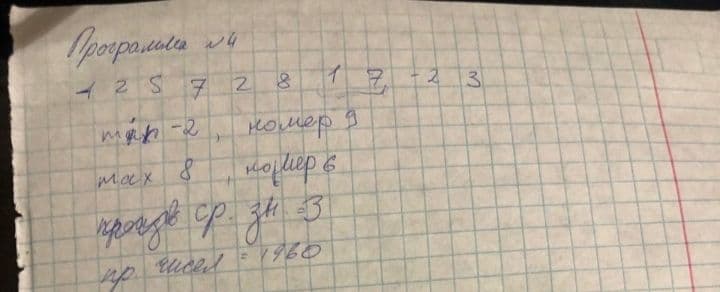 Программа №4
-1 2 5 7 2 8 1 7 -2 3
min -2, номер 9
max 8, номер 6
произв ср. зн. = 3
пр чисел = 1960